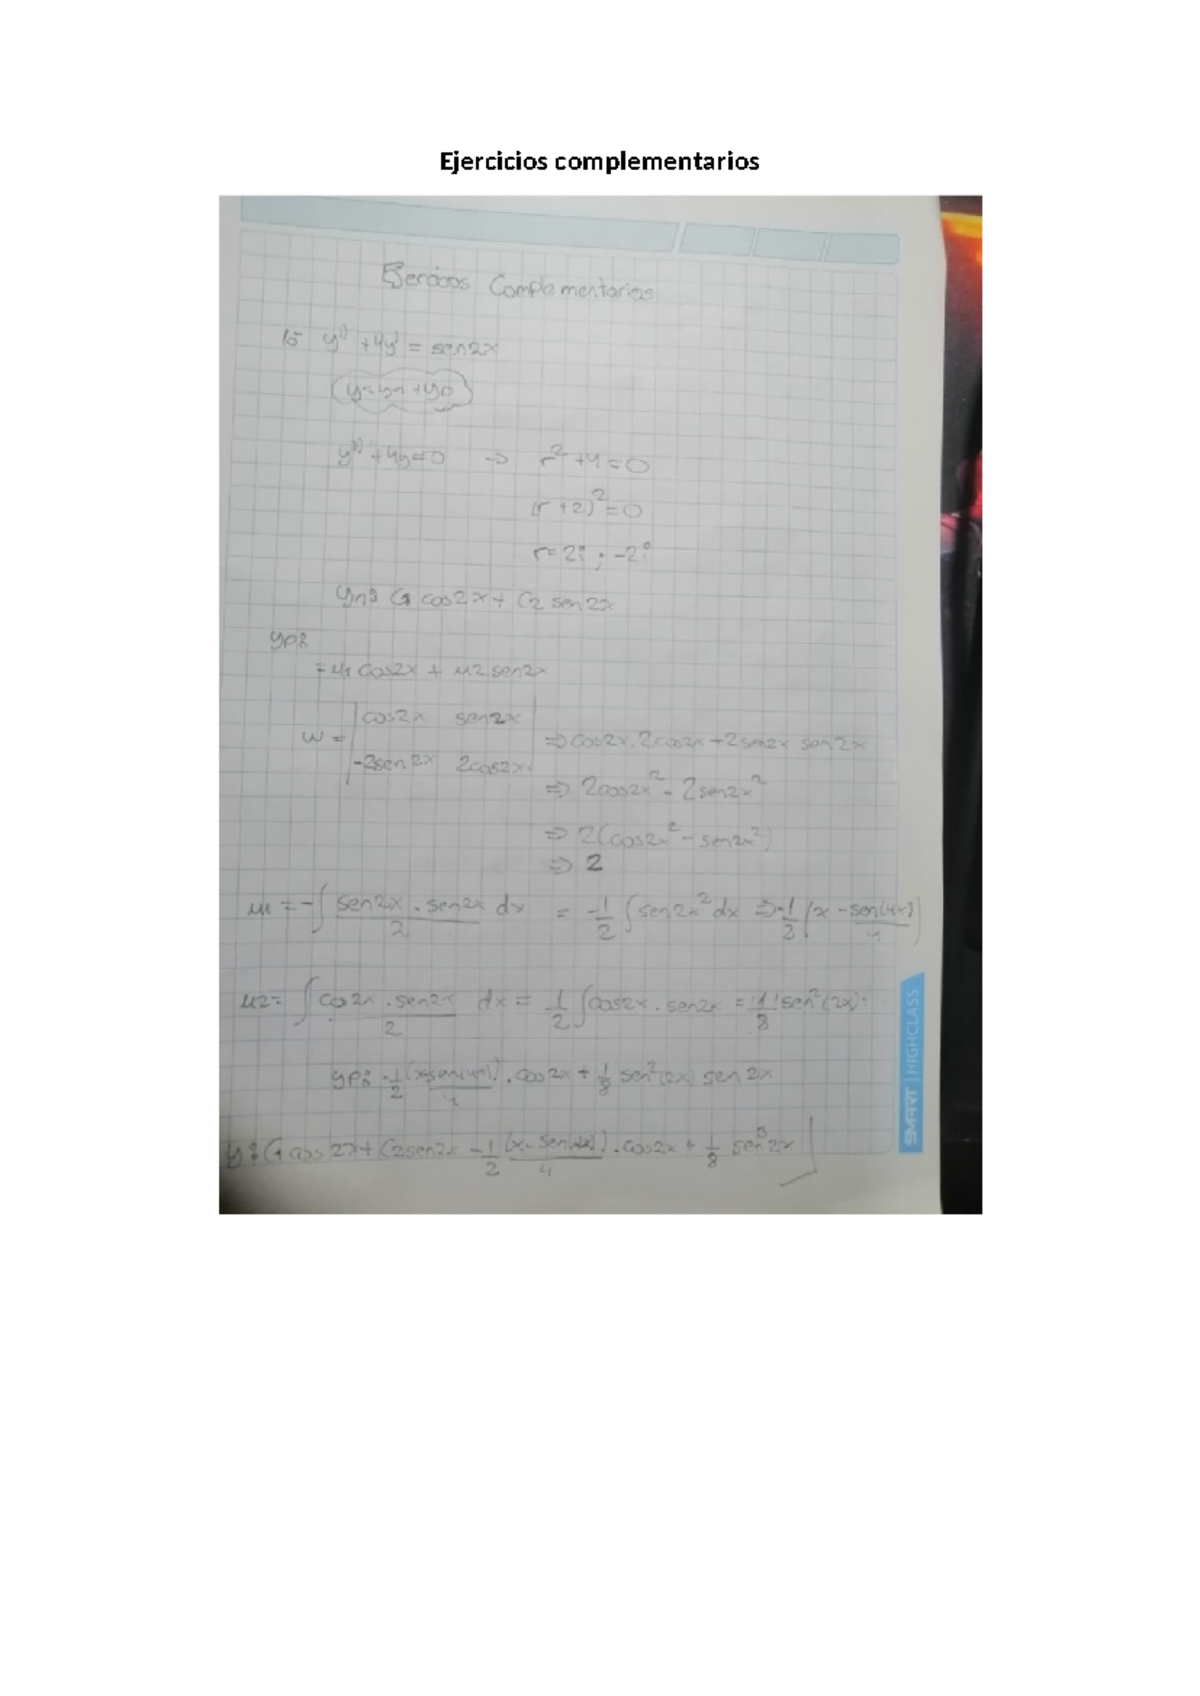 Ejercicios complementarios
Ejercicios Complementarios
15 y'' + 4y' = sen2x
y = yn + yp
y'' + 4y = 0 => r² + 4 = 0
(r + 2)² = 0
r = 2i ; -2i
yn: C1 cos2x + C2 sen2x
yp:
= u1 cos2x + u2 sen2x
w = | cos2x sen2x | => cos2x . 2cos2x + 2sen2x sen2x
| -2sen2x 2cos2x |
=> 2cos2x² - 2sen2x²
=> 2(cos2x² - sen2x²)
=> 2
u1 = -∫ sen2x . sen2x / 2 dx = -1/2 ∫ sen2x² dx => -1/2 (x - sen(4x)/4)
u2 = ∫ cos2x . sen2x / 2 dx = 1/2 ∫ cos2x . sen2x = 1/8 sen²(2x)
yp: -1/2 (x-sen(4x))/4 . cos2x + 1/8 sen²(2x) sen2x
y: C1 cos2x + C2sen2x - 1/2 (x - sen(4x))/4 . cos2x + 1/8 sen³2x
SMART | HIGHCLASS